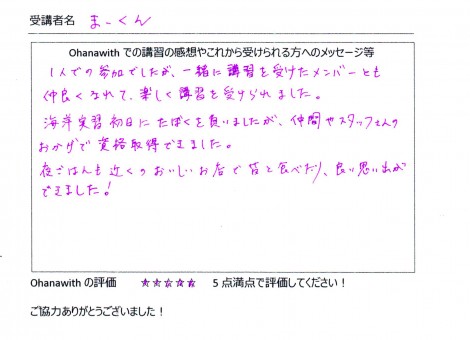 受講者名 まーくん
Ohanawith での講習の感想やこれから受けられる方へのメッセージ等
1人での参加でしたが、一緒に講習を受けたメンバーとも
仲良くなれて、楽しく講習を受けられました。
海洋実習初日にたばくを負いましたが、仲間やスタッフさんの
おかげで資格取得できました。
夜ごはんも近くのおいしいお店で皆と食べたり、良い思い出が
できました!
Ohanawith の評価 ★★★★★ 5 点満点で評価してください!
ご協力ありがとうございました!